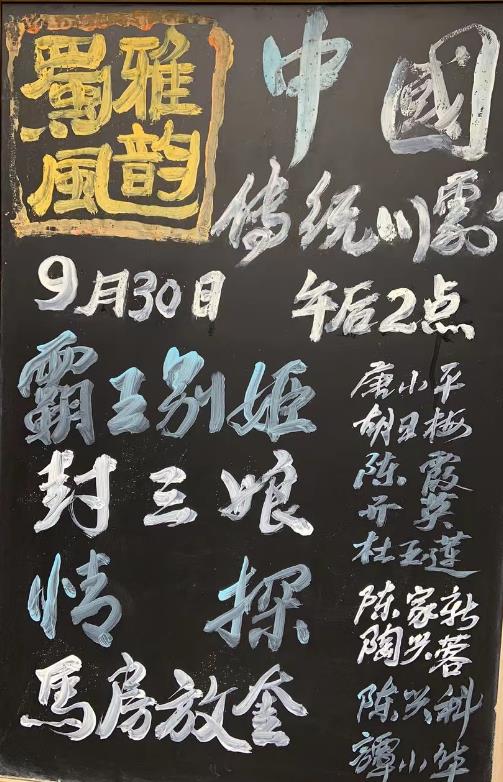 蜀風
雅韵
中國
傳统川劇
9月30日 午后2点
霸王别姬
封三娘
情探
馬房放奎
唐小平
胡玉梅
陈霞
英
杜玉莲
陈家新
陶兴蓉
陈兴科
譚小